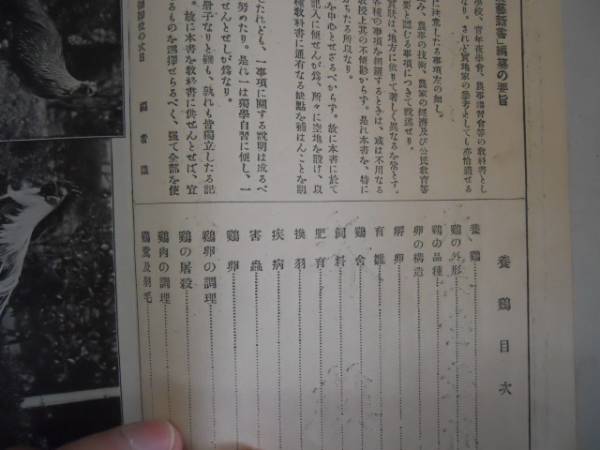 藝叢書」編纂の要旨
學校、青年夜學會、農事講習會等の教科書とし
なり。されど實地家の參考としても亦恰適せる
に注意したる事項左の如し。
み、農事の技術、農家の經濟及び公民教育等
要と認むる事項につきて敍述せり。
實狀は地方に依りて著しく異なるを常とす。
各種の事項を網羅するときは、或は不用なる
教授上其の不便尠からず。是れ本書を、特に
ちたる所以なり。
を中心とせざるべからず。故に本書に於て
犯人に便せんが爲、所々に空地を設け、以
種教科書に通有なる缺點を補はんことを期
たれども、一事項に關する說明は成るべ
努めたり。是れ一は獨學自習に便し、一
せんとせしが爲なり。
册子なりと雖も、孰れも皆獨立したる記
。故に本書を教科書に供せんとせば、宜
るものを選擇せらるべく、强て全部を使
編者識
養鷄目次
養鷄
鷄の外形
鷄の品種
卵の構造
孵卵
育雛
鷄舍
飼料
肥育
換羽
疾病
害蟲
鷄卵
鷄卵の調理
鷄の屠殺
鷄肉の調理
鷄糞及羽毛